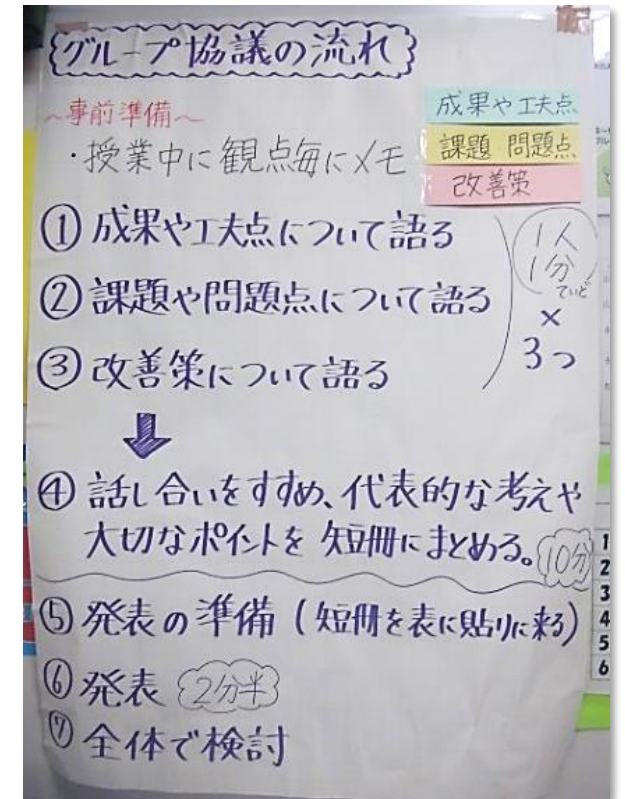 グループ協議の流れ
～事前準備～
・授業中に観点毎にメモ
成果や工夫点
課題 問題点
改善策
① 成果や工夫点について語る
② 課題や問題点について語る
③ 改善策について語る
1人
1分
ていど
×
3つ
④ 話し合いをすすめ、代表的な考えや
大切なポイントを 短冊にまとめる。
10分
⑤ 発表の準備（短冊を表に貼りに来る）
⑥ 発表 2分半
⑦ 全体で検討
1
2
3
4
5
6